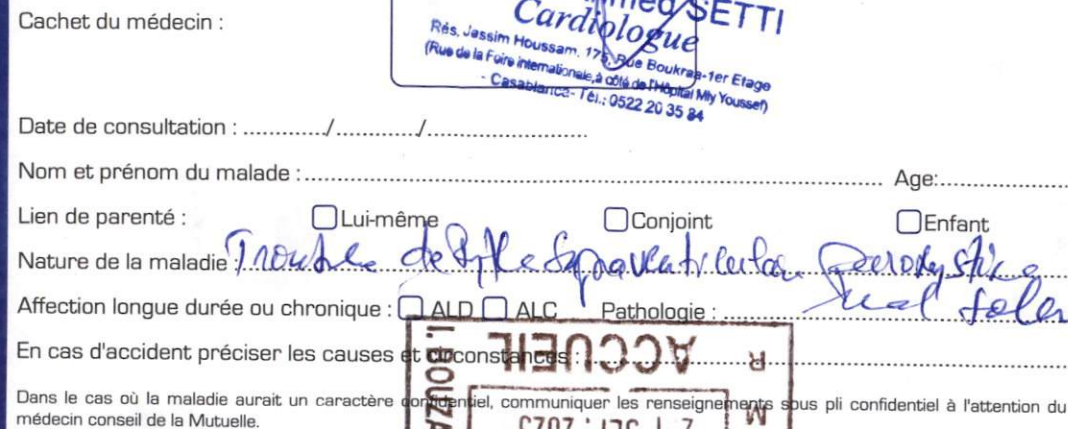 Cachet du médecin :
SETTI
Cardiologue
Rés. Jassim Houssam. 175, Rue Boukraa-1er Etage
(Rue de la Foire internationale, à côté de l'Hôpital Mly Youssef)
- Casablanca- Tél.: 0522 20 35 84
Date de consultation : ............/............/......................
Nom et prénom du malade : ........................ Age: ............
Lien de parenté : Lui-même Conjoint Enfant
Nature de la maladie : Trouble de Rythme Supraventriculaire paroxystique
Affection longue durée ou chronique : ALD ALC Pathologie : ............ mal
En cas d'accident préciser les causes et circonstances : ............
ACCUEIL
I. BOUZA
Dans le cas où la maladie aurait un caractère confidentiel, communiquer les renseignements sous pli confidentiel à l'attention du
médecin conseil de la Mutuelle.